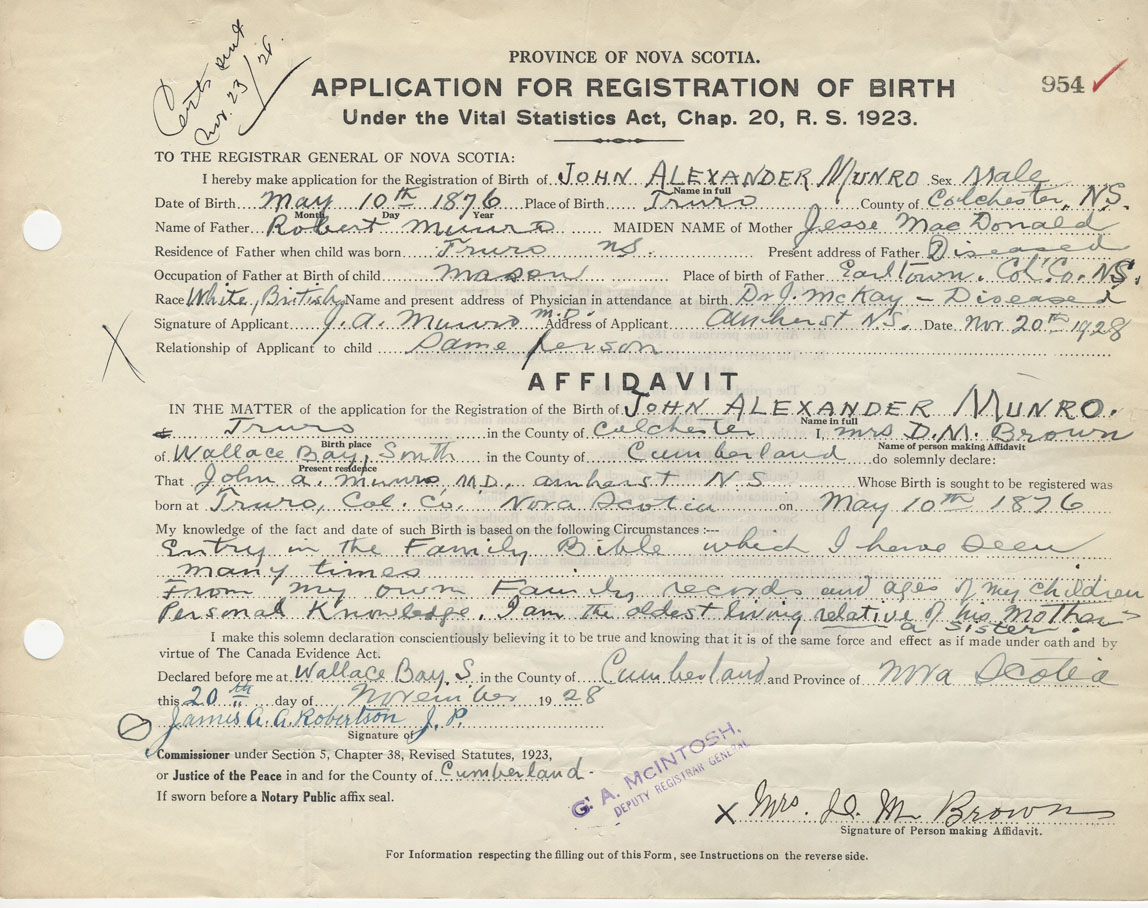 Certs sent
Nov. 23/28
PROVINCE OF NOVA SCOTIA.
APPLICATION FOR REGISTRATION OF BIRTH
954 ✓
Under the Vital Statistics Act, Chap. 20, R. S. 1923.
TO THE REGISTRAR GENERAL OF NOVA SCOTIA:
I hereby make application for the Registration of Birth of JOHN ALEXANDER MUNRO Sex Male
Name in full
Date of Birth May 10th 1876 Place of Birth Truro County of Colchester, N.S.
Month Day Year
Name of Father Robert Munro MAIDEN NAME of Mother Jesse MacDonald
Residence of Father when child was born Truro NS. Present address of Father Diseased
Occupation of Father at Birth of child mason Place of birth of Father Earltown. Col. Co. NS.
Race White, British Name and present address of Physician in attendance at birth Dr J. McKay - Diseased
Signature of Applicant J. A. Munro M.D. Address of Applicant Amherst N.S. Date Nov. 20th 1928
X
Relationship of Applicant to child Same person
AFFIDAVIT
IN THE MATTER of the application for the Registration of the Birth of JOHN ALEXANDER MUNRO.
Name in full
Truro in the County of Colchester I, Mrs D. M. Brown
Birth place Name of person making Affidavit
of Wallace Bay, South in the County of Cumberland do solemnly declare:
Present residence
That John A. Munro, M.D., Amherst N S Whose Birth is sought to be registered was
born at Truro, Col. Co. Nova Scotia on May 10th 1876
My knowledge of the fact and date of such Birth is based on the following Circumstances :---
Entry in the Family Bible which I have seen
many times
From my own Family records and ages of my children
Personal Knowledge. I am the oldest living relative of his Mother
a sister.
I make this solemn declaration conscientiously believing it to be true and knowing that it is of the same force and effect as if made under oath and by
virtue of The Canada Evidence Act.
Declared before me at Wallace Bay, S in the County of Cumberland and Province of Nova Scotia
this 20th day of November 1928
James A. A. Robertson J. P.
Signature of
Commissioner under Section 5, Chapter 38, Revised Statutes, 1923,
or Justice of the Peace in and for the County of Cumberland.
If sworn before a Notary Public affix seal.
G. A. McINTOSH,
DEPUTY REGISTRAR GENERAL
X Mrs. D. M. Brown
Signature of Person making Affidavit.
For Information respecting the filling out of this Form, see Instructions on the reverse side.